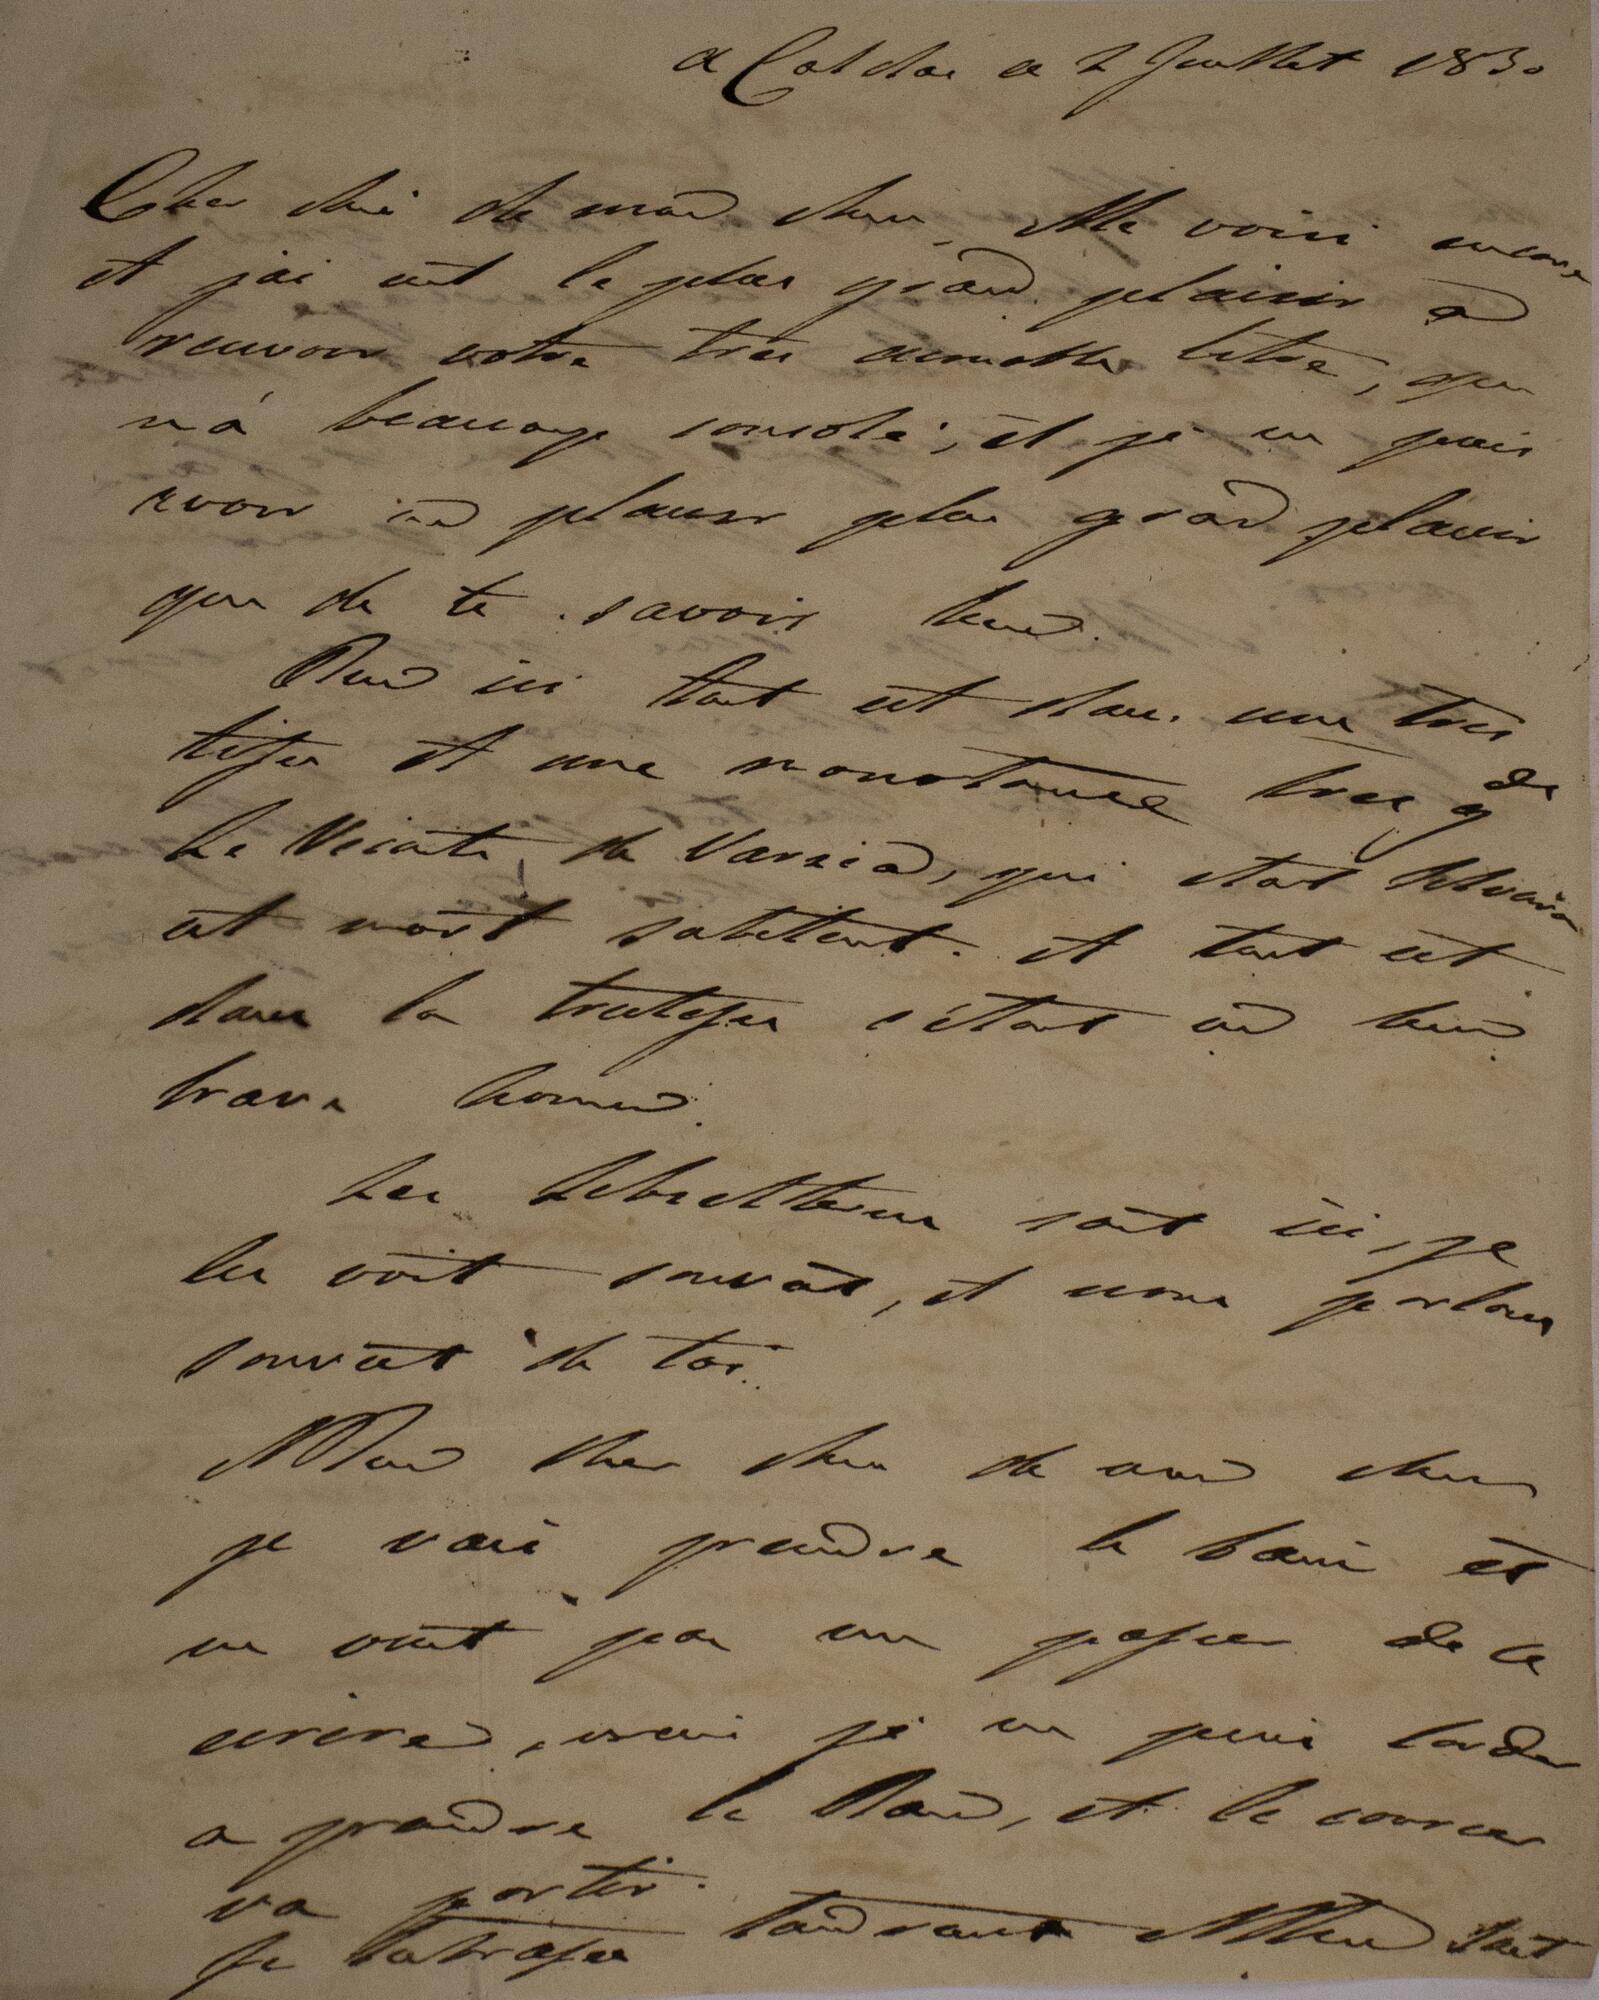 a Caldas ce 2 Juillet 1830
Cher Ami de mon cher, Me voici encore
et jai eut le plus grand plaisir a
recevoir votre tres aimable letre, que
m'a beaucoup consolé, et je ne puis
avoir un plaisir plus grand plaisir
que de te savoir bien.
Bien ici tout est dans une tres
tesse et une tres gde
Le Vicomte de Varzea, qui etoit
est mort subittent. et tout est
dans la tristesse c'étoit un bien
brave homme.
Les sont ici, je
les voit souvent, et nous parlons
souvent de toi.
Mon cher cher de mon cher
je vais prendre le bain et
ne veut pas me passer de te
ecrire, mais je ne puis tarder
a prendre le Bain, et le courier
va partir.
Je tabrasse tandrement Mon tout